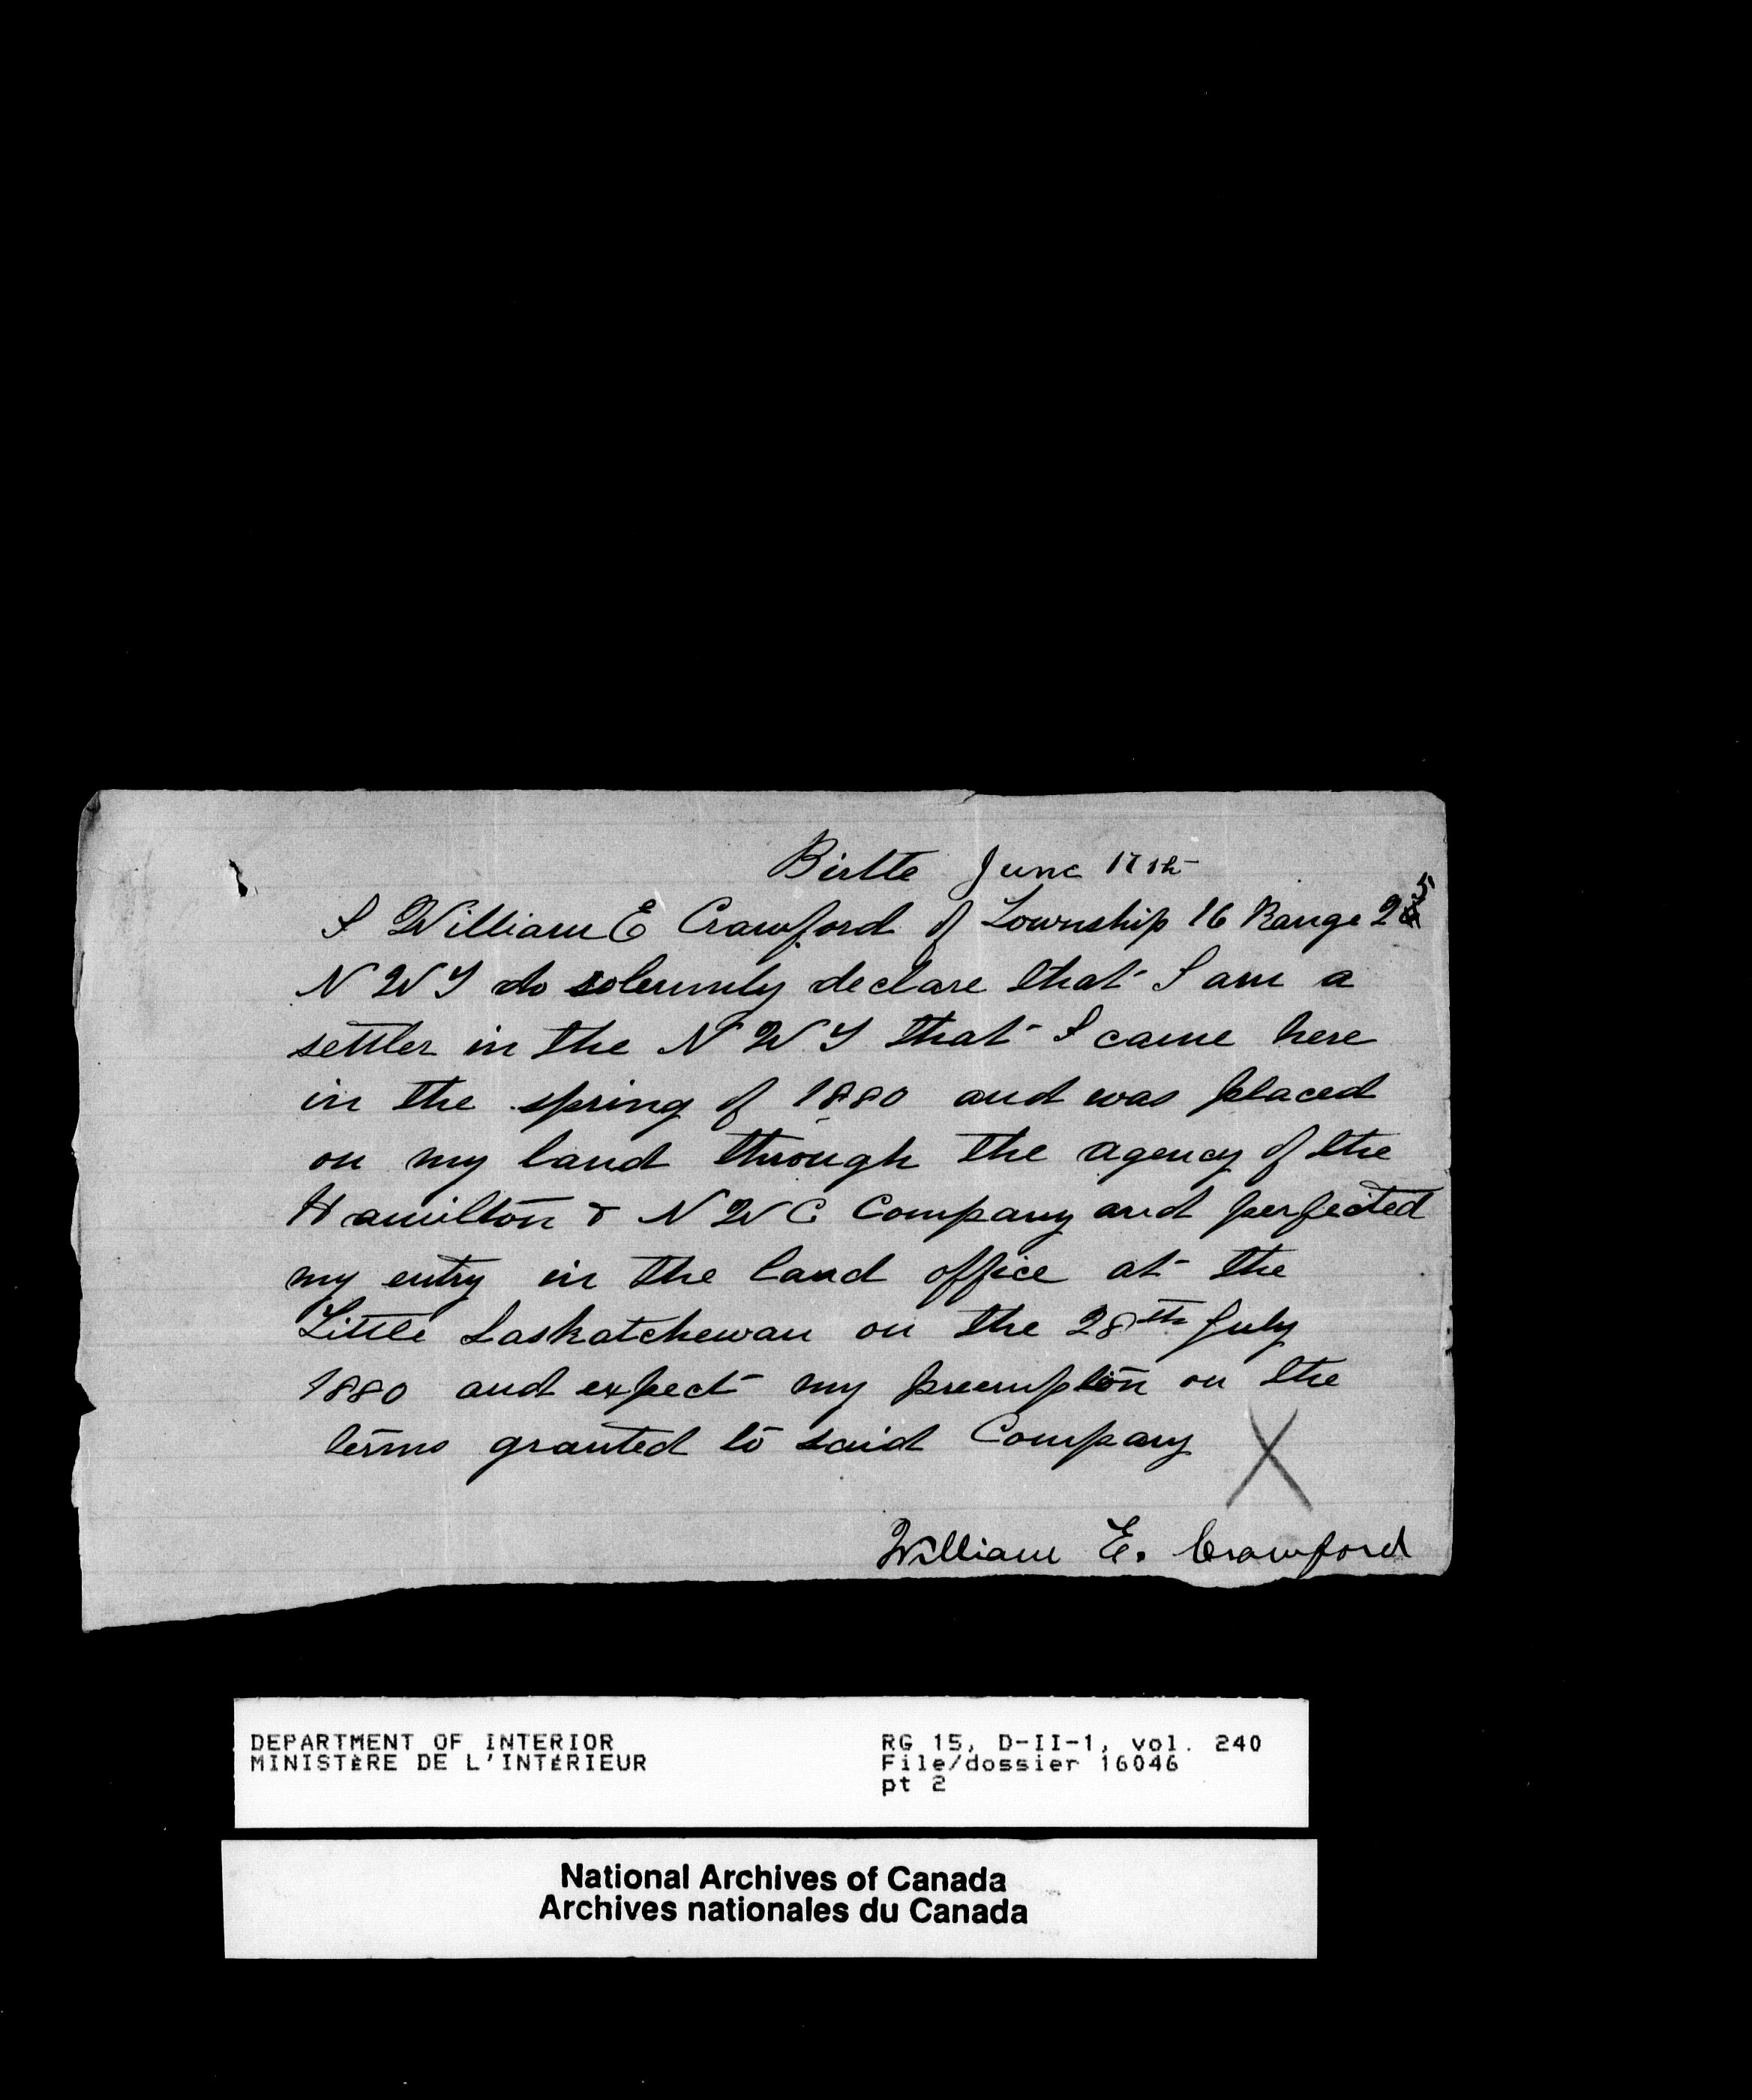 Birtle June 17th
I William E Crawford of Township 16 Range 25
N W T do solemnly declare that I am a
settler in the N W T that I came here
in the spring of 1880 and was placed
on my land through the agency of the
Hamilton & N W C Company and perfected
my entry in the land office at the
Little Saskatchewan on the 28th July
1880 and expect my preemption on the
terms granted to said Company
X
William E. Crawford
DEPARTMENT OF INTERIOR
MINISTÈRE DE L'INTÉRIEUR
RG 15, D-II-1, vol. 240
File/dossier 16046
pt 2
National Archives of Canada
Archives nationales du Canada